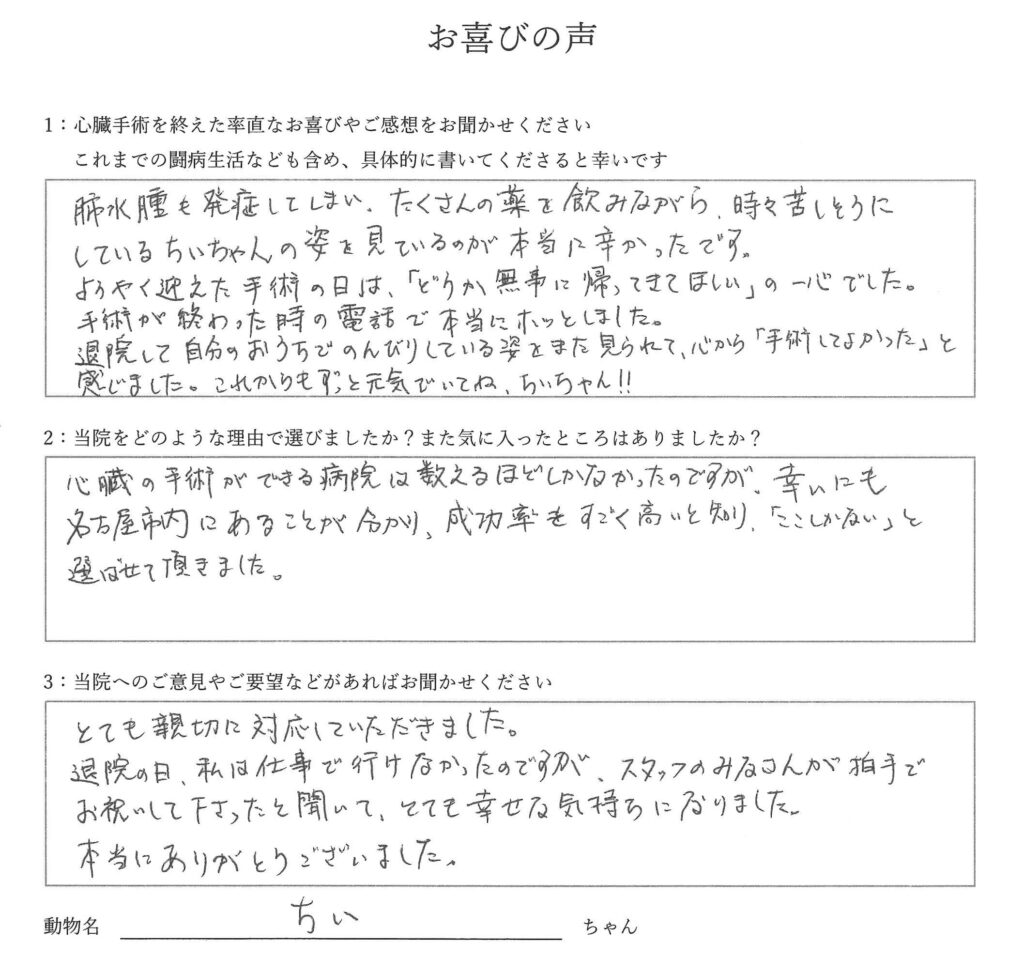 お喜びの声
1：心臓手術を終えた率直なお喜びやご感想をお聞かせください
これまでの闘病生活なども含め、具体的に書いてくださると幸いです
肺水腫も発症してしまい、たくさんの薬を飲みながら、時々苦しそうに
しているちぃちゃんの姿を見ているのが本当に辛かったです。
ようやく迎えた手術の日は、「どうか無事に帰ってきてほしい」の一心でした。
手術が終わった時の電話で本当にホッとしました。
退院して自分のおうちでのんびりしている姿をまた見られて、心から「手術してよかった」と
感じました。これからもずっと元気でいてね、ちぃちゃん!!
2：当院をどのような理由で選びましたか？また気に入ったところはありましたか？
心臓の手術ができる病院は数えるほどしかなかったのですが、幸いにも
名古屋市内にあることが分かり、成功率もすごく高いと知り、「ここしかない」と
選ばせて頂きました。
3：当院へのご意見やご要望などがあればお聞かせください
とても親切に対応していただきました。
退院の日、私は仕事で行けなかったのですが、スタッフのみなさんが拍手で
お祝いして下さったと聞いて、とても幸せな気持ちになりました。
本当にありがとうございました。
動物名 ちぃ ちゃん